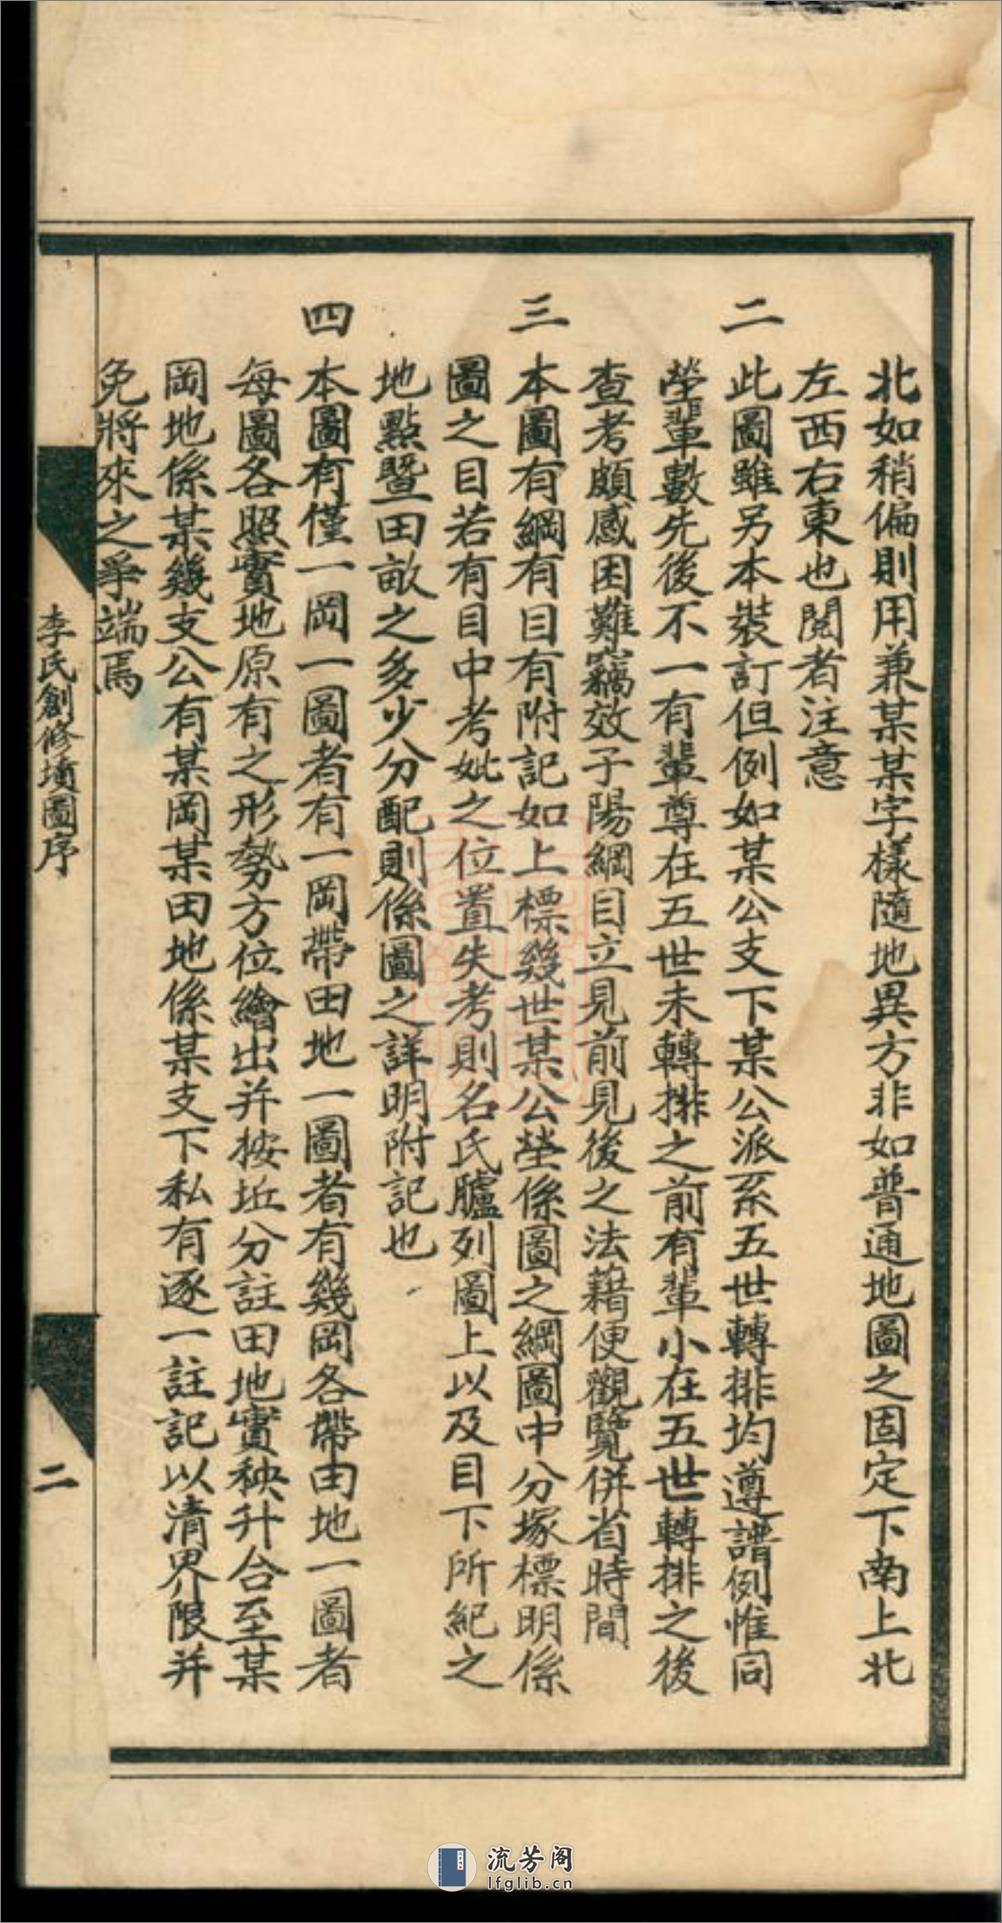 北如稍偏則用兼某某字樣隨地異方非如普通地圖之固定下南上北
左西右東也閱者注意
二 此圖雖另本裝訂但例如某公支下某公派系五世轉排均遵譜例惟同
塋輩數先後不一有輩尊在五世未轉排之前有輩小在五世轉排之後
查考頗感困難竊效子陽綱目立見前見後之法藉便觀覽併省時間
三 本圖有綱有目有附記如上標幾世某公塋係圖之綱圖中分塚標明係
圖之目若有目中考妣之位置失考則名氏臚列圖上以及目下所紀之
地點暨田畝之多少分配則係圖之詳明附記也
四 本圖有僅一岡一圖者有一岡帶田地一圖者有幾岡各帶田地一圖者
每圖各照實地原有之形勢方位繪出并按坵分註田地實秧升合至某
岡地係某幾支公有某岡某田地係某支下私有逐一註記以清界限并
免將來之爭端焉
李氏創修墳圖序
二
流芳阁
lfglib.cn